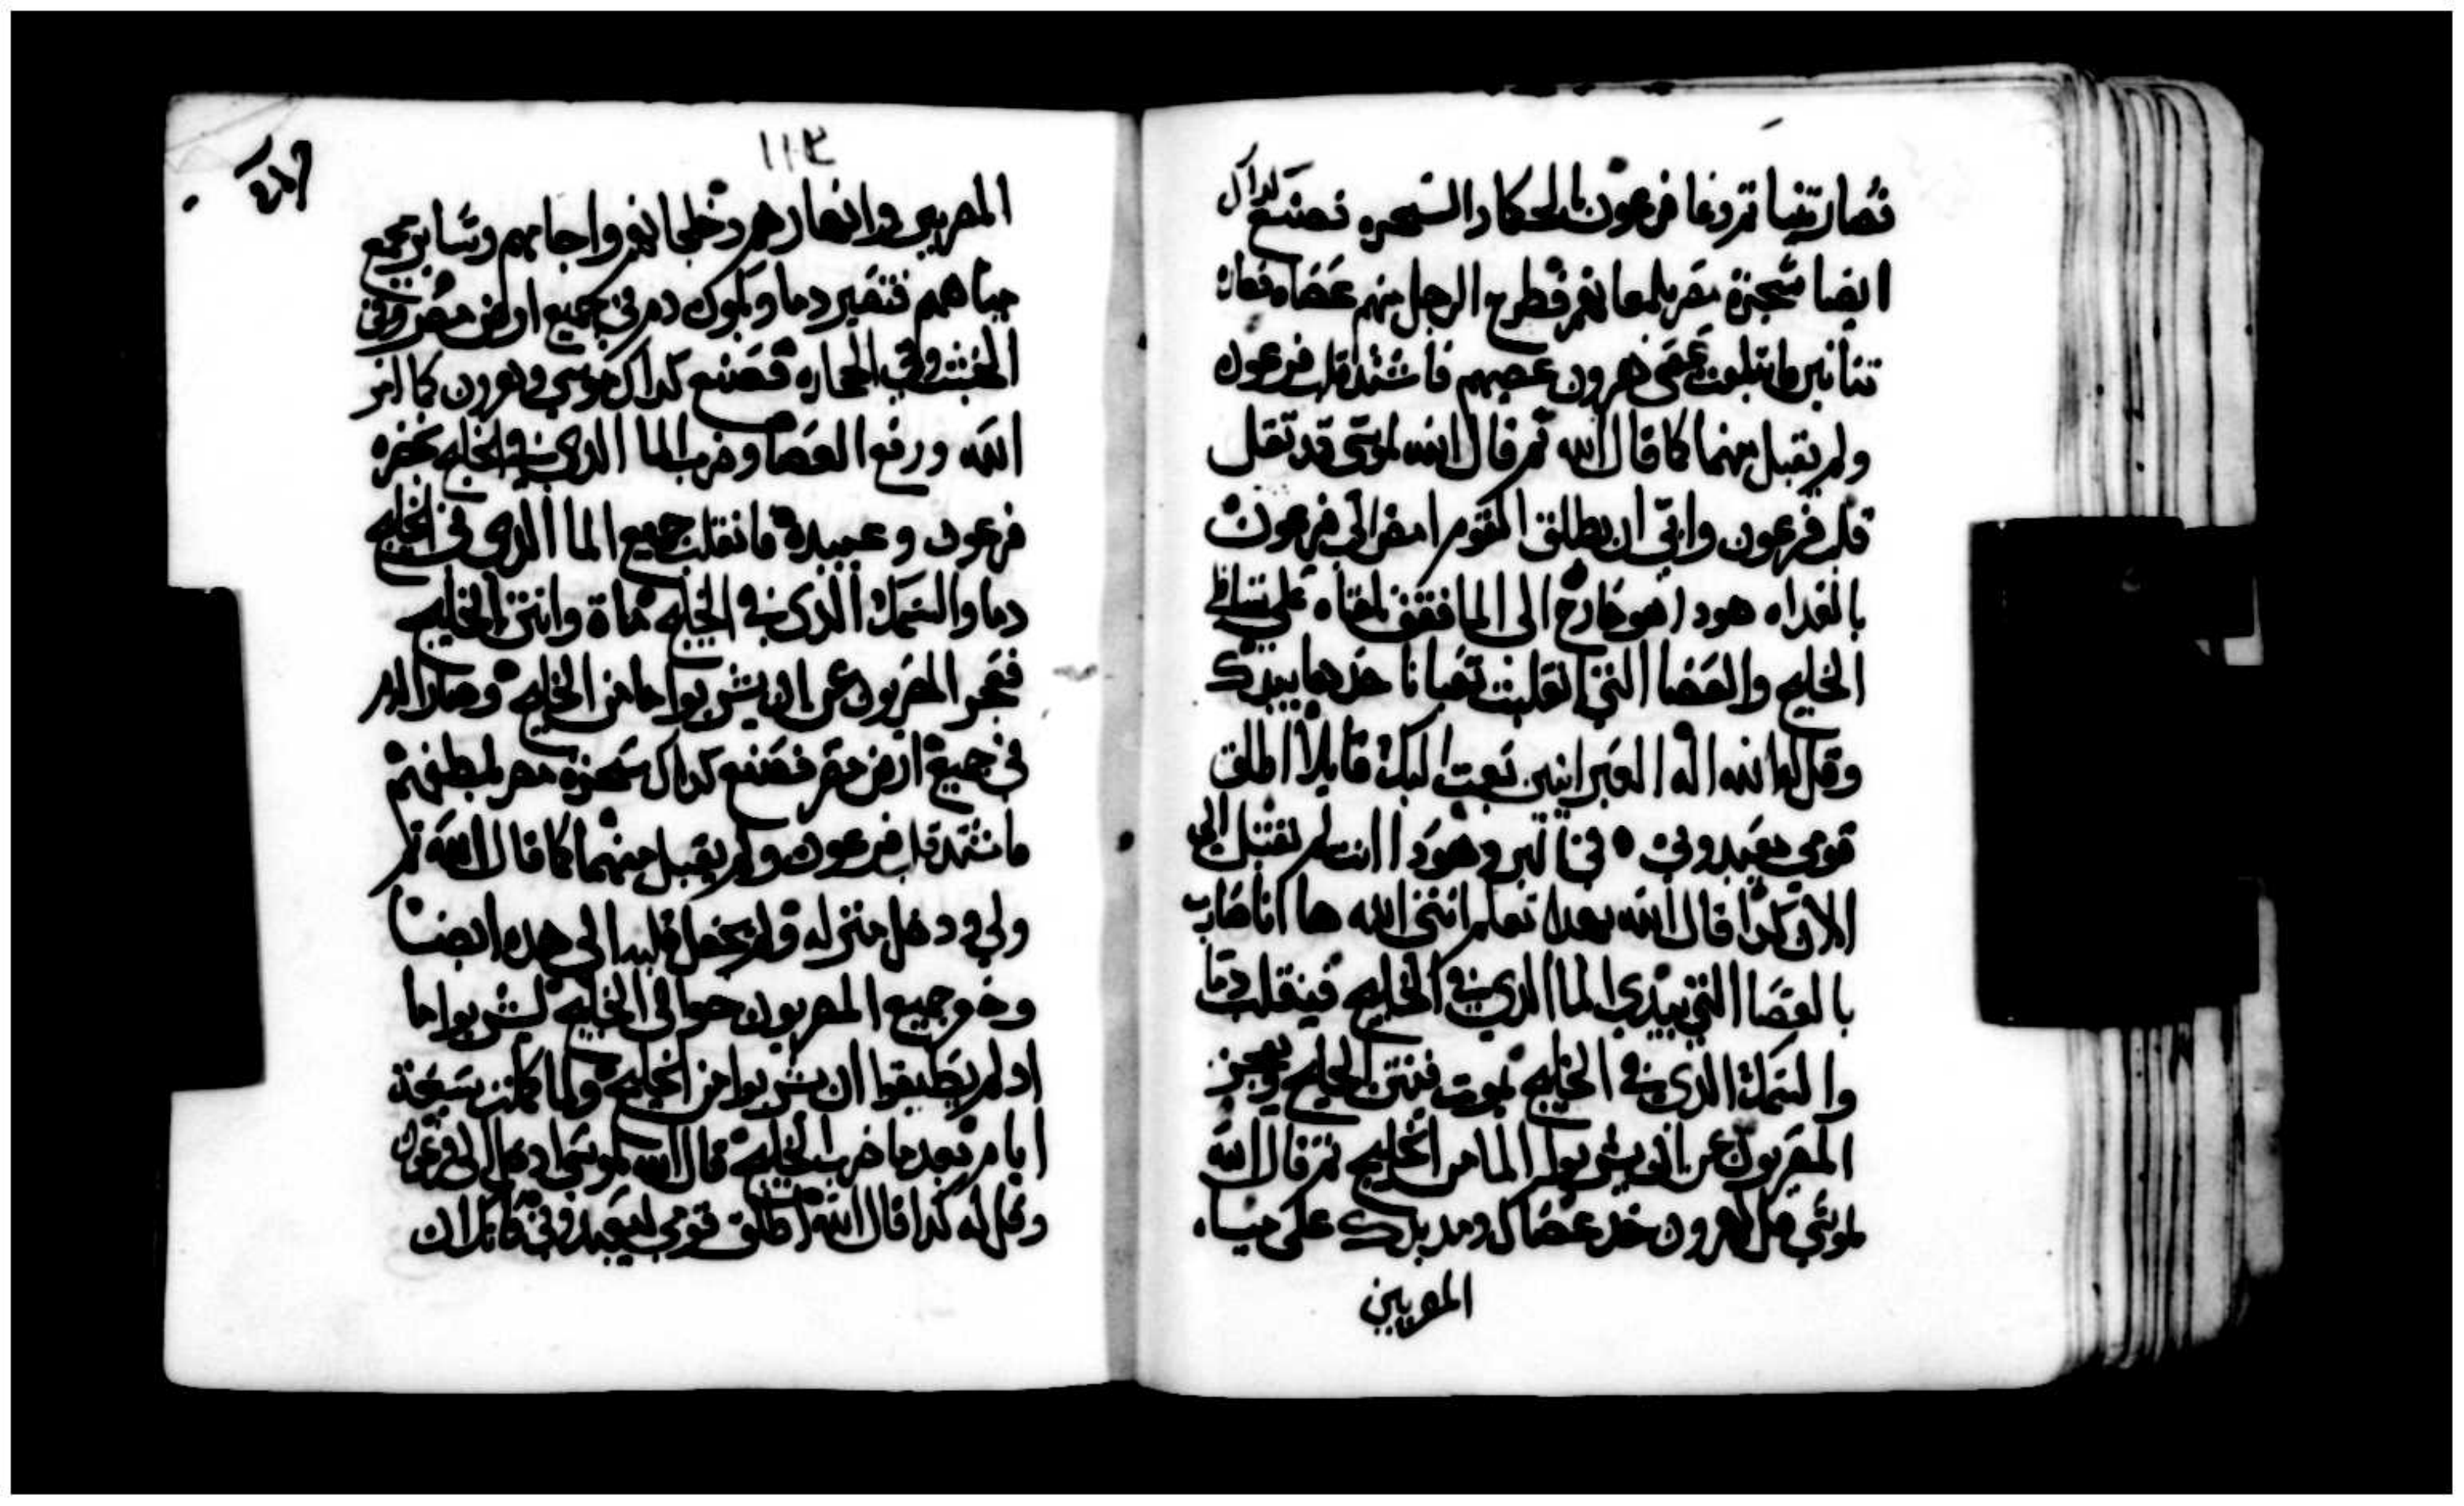 فصار تنينا ثم دعا فرعون بالحكما والسحره فصنع كداك
ايضا سحرة مصر بلمعانهم فطرح الرجل منهم عصاه فصارت
تنانين وابتلعت عصى هرون عصيهم فاشتد قلب فرعون
ولم يقبل منهما كما قال الله ثم قال الله لموسى قد ثقل
قلب فرعون وابى ان يطلق القوم امض الى فرعون
بالغداه هودا هو خارج الى الما فقف تلقاه على شاطى
الخليج والعصا التي انقلبت ثعبانا خدها بيدك
وقل له الله اله العبرانيين بعت اليك قايلا اطلق
قومي يعبدوني في البر وهودا انت لم تقبل الى
الان كدا قال الله بهدا تعلم انني الله ها انا ضارب
بالعصا التي بيدي الما الدي في الخليج فينقلب دما
والسمك الدي في الخليج يموت فينتن الخليج ويعجز
المصريون عن ان يشربوا الما من الخليج ثم قال الله
لموسى قل لهرون خد عصاك ومد يدك على مياه
المصريين
١١٣
المصريين وانهارهم وخلجانهم واجامهم وساير مجمع
مياههم فتصير دما ويكون دم في جميع ارض مصر وفي
الخشب وفي الحجاره فصنع كداك موسى وهرون كما امر
الله ورفع العصا وضرب الما الدي في الخليج بحضره
فرعون وعبيده فانقلب جميع الما الدي في الخليج
دما والسمك الدي في الخليج مات وانتن الخليج
فعجز المصريون عن ان يشربوا ما من الخليج وصار الدم
في جميع ارض مصر فصنع كداك سحرة مصر بلطفهم
فاشتد قلب فرعون ولم يقبل منهما كما قال الله ثم
ولى ودخل منزله ولم يجعل قلبه الى هده ايضا
وحفر جميع المصريون حوالى الخليج ليشربوا ما
اد لم يطيقوا ان يشربوا من الخليج ولما كملت سبعة
ايام بعد ما ضرب الخليج قال الله لموسى ادخل الى فرعون
وقل له كدا قال الله اطلق قومي ليعبدوني فان